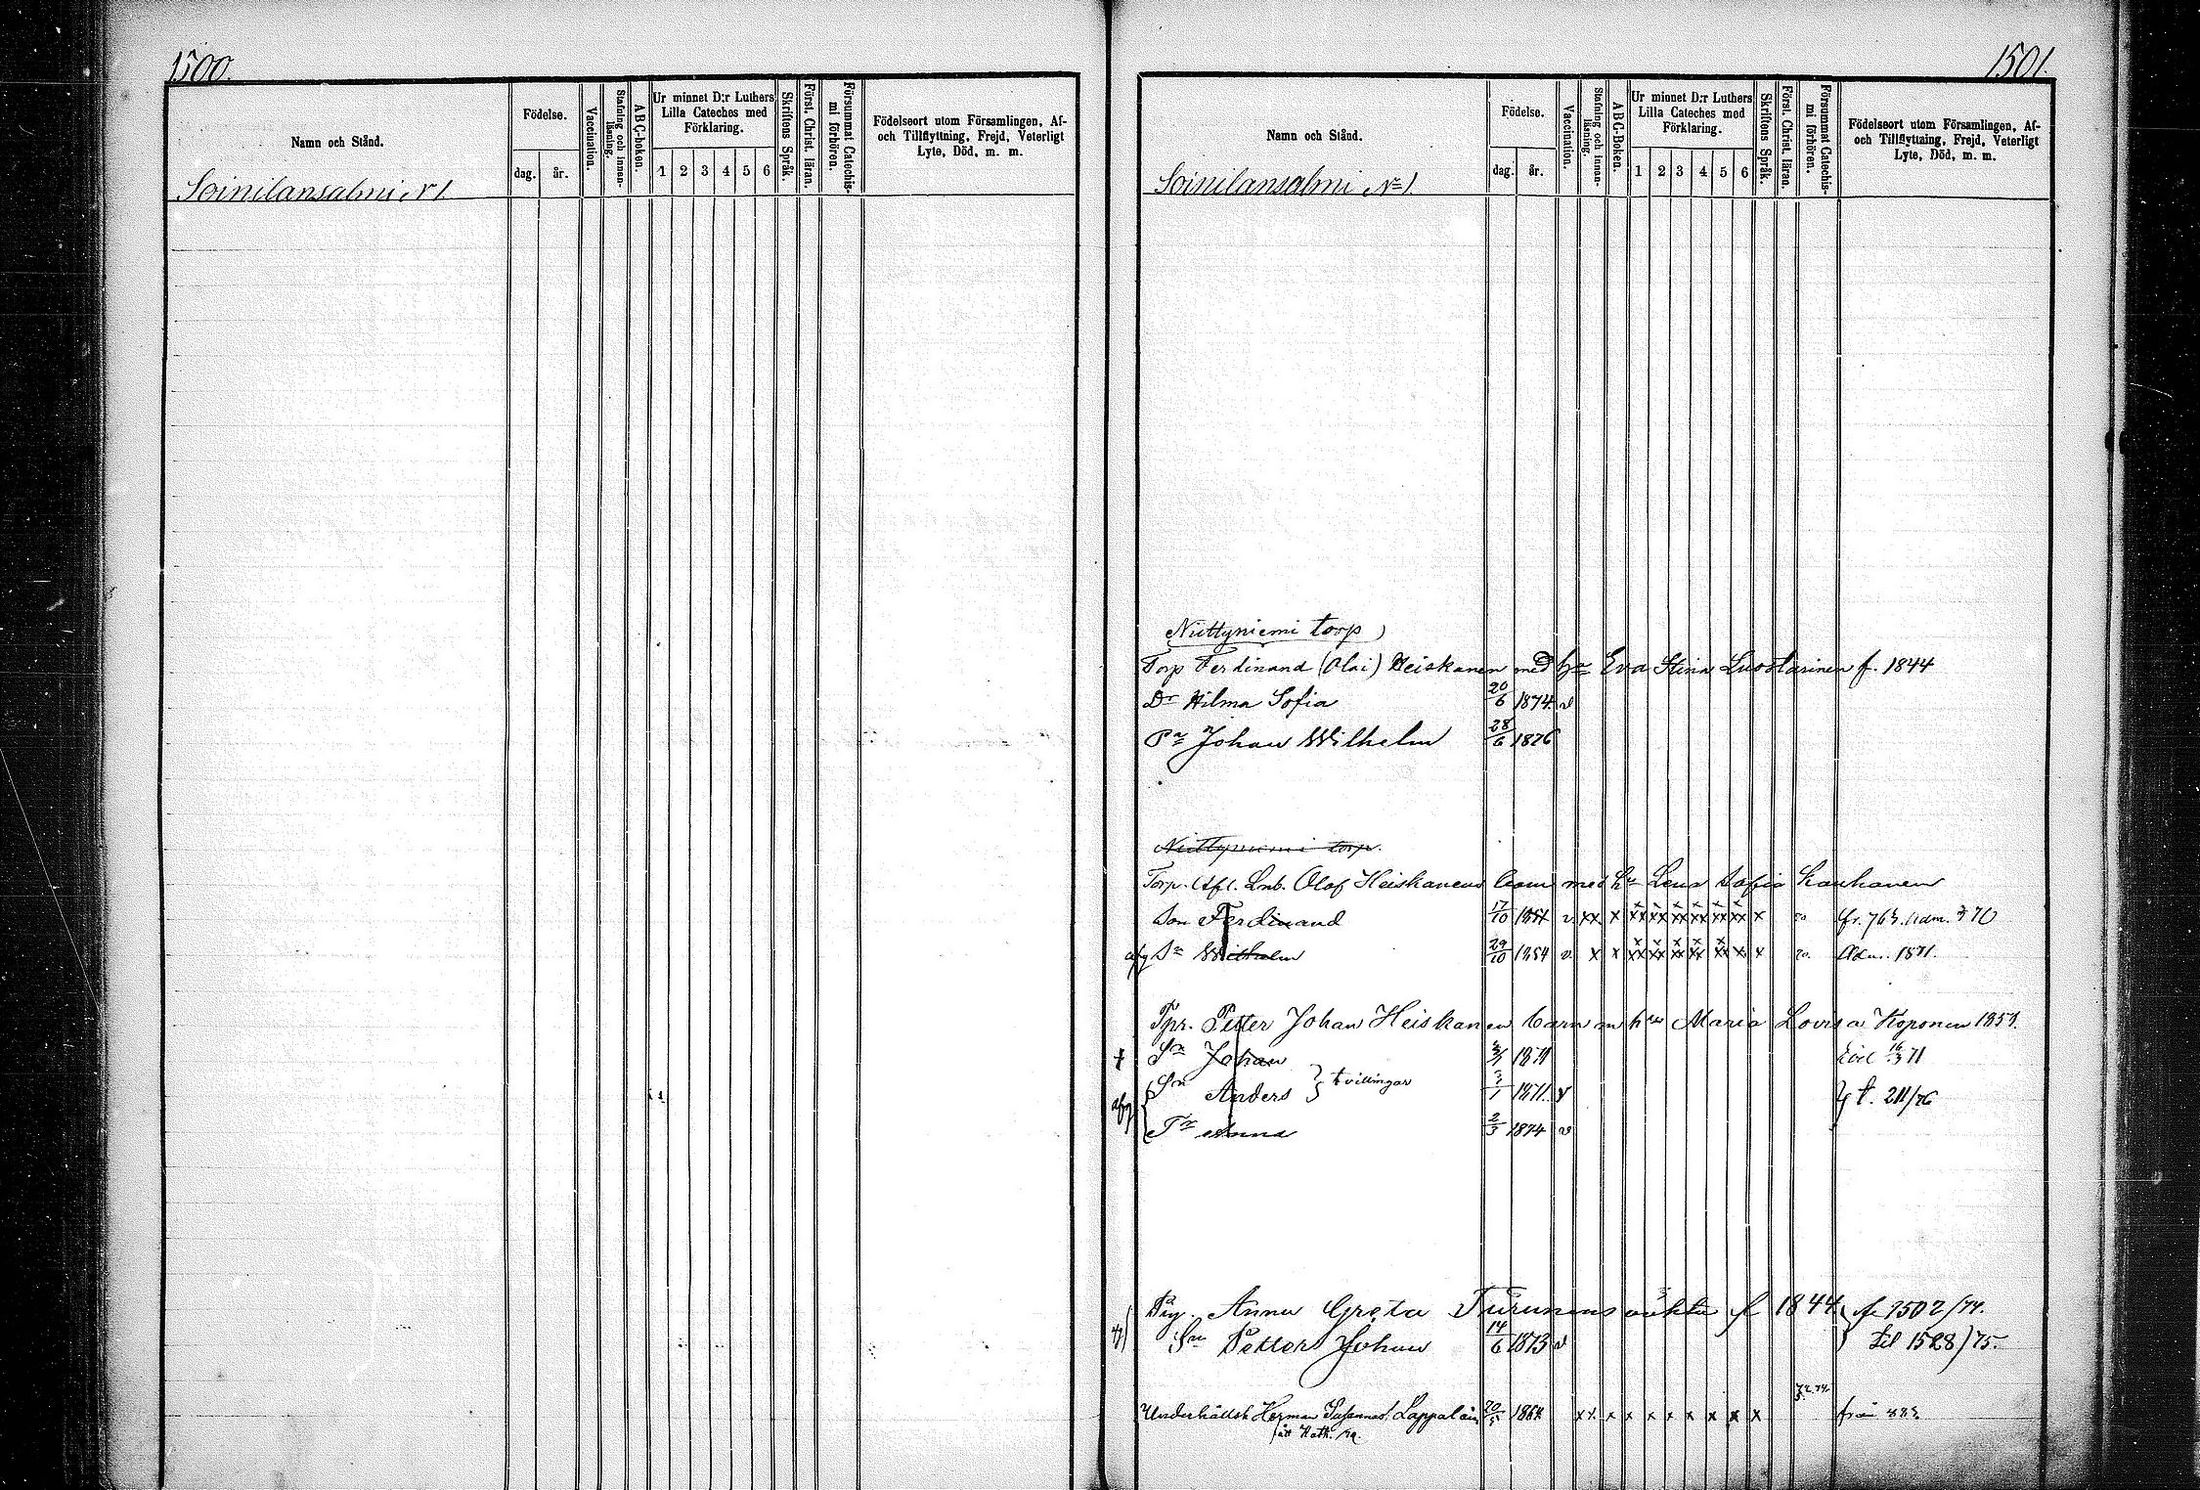 1500.
Namn och Stånd.
Födelse.
dag.
år.
Vaccination.
Stafning och innan-
läsning.
ABC-boken.
Ur minnet D:r Luthers
Lilla Cateches med
Förklaring.
1 2 3 4 5 6
Skriftens Språk.
Först. Christ. läran.
Försummat Catechis-
mi förhören.
Födelseort utom Församlingen, Af-
och Tillflyttning, Frejd, Veterligt
Lyte, Död, m. m.
Soinilansalmi N 1.
1501.
Namn och Stånd.
Födelse.
dag.
år.
Vaccination.
Stafning och innan-
läsning.
ABC-Boken.
Ur minnet D:r Luthers
Lilla Cateches med
Förklaring.
1 2 3 4 5 6
Skriftens Språk.
Först. Christ. läran.
Försummat Catechis-
mi förhören.
Födelseort utom Församlingen, Af-
och Tillflyttning, Frejd, Veterligt
Lyte, Död, m. m.
Soinilansalmi N 1.
Niittyniemi torp
Torp Ferdinand (Olai) Heiskanen med hu Eva Stina Luostarinen f. 1844
Dr Hilma Sofia 20/6 1874. v
Pn Johan Wilhelm 28/6 1876
Niittyniemi torp.
Torp. Afl. Lnb. Olof Heiskanens barn med hu Lena Sofia Kauhanen
Son Ferdinand 17/10 v xx x xx xx xx xx xx xx x
afg Sn Wilhelm 29/10 1854 v. x x xx xx xx xx xx x x Adm. 1871.
Tpr. Petter Johan Heiskanen barn m hu Maria Lovisa Koponen
† Sn Johan 1871 71
Sn Anders } tvillingar 1871. v
afg Anna 2/3 1874 v
Pig. Anna Greta Turunens f 1844 fr 1502/74.
Sn Petter Johan 14/6 1873 v til 1528/75.
Underhållsh Herman Lappalain 20/5 xx x x x x x x x x från